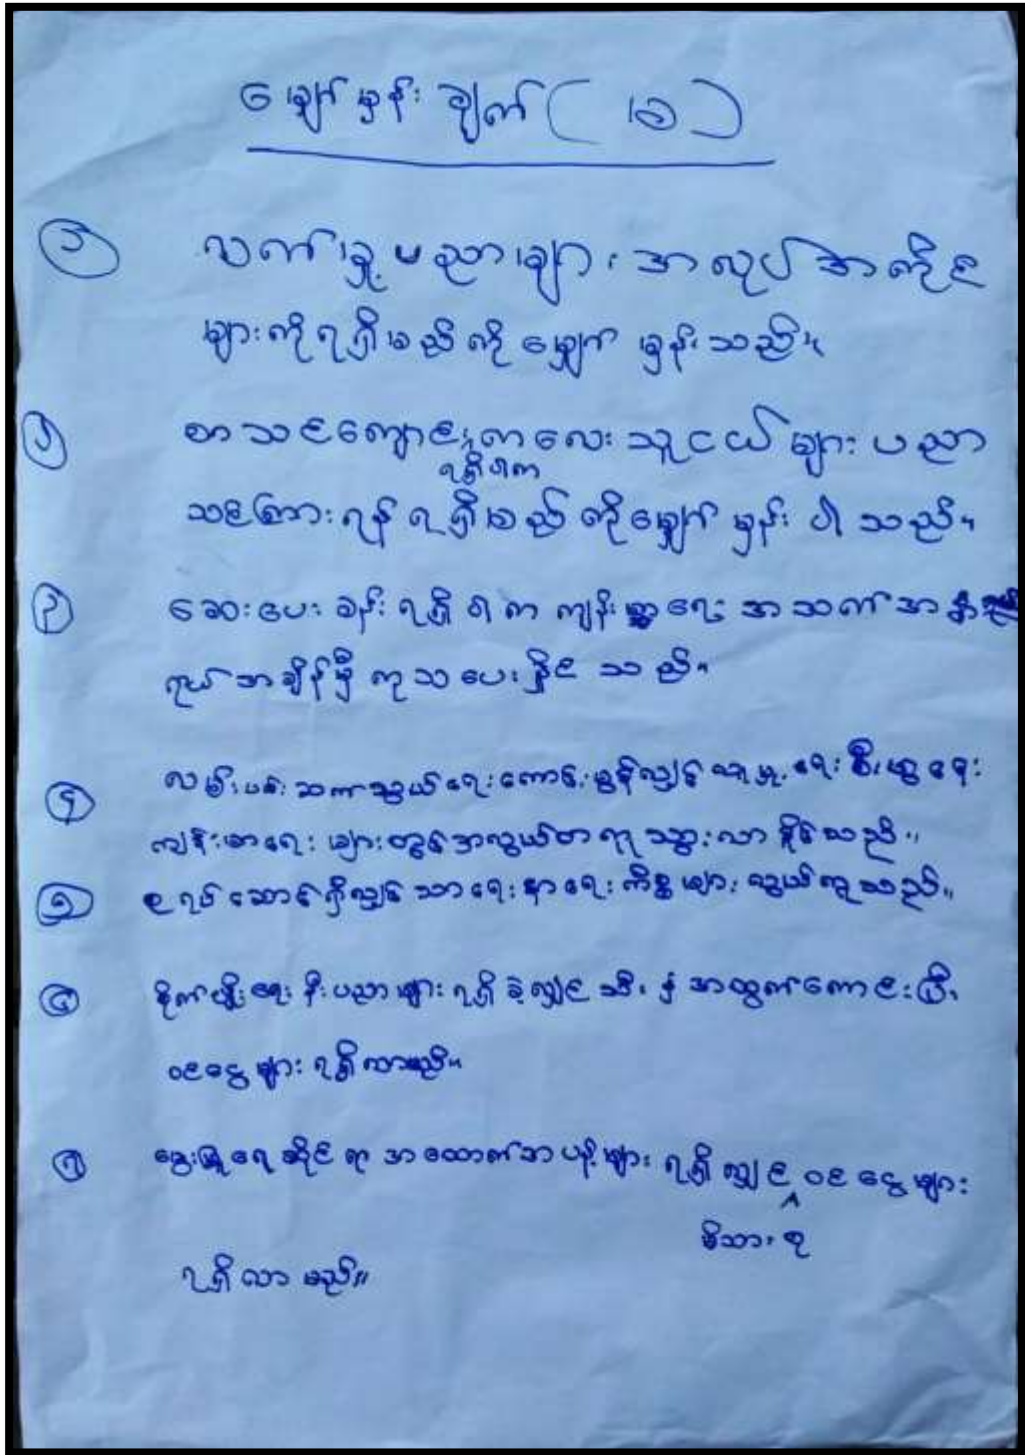 မျှော်မှန်းချက် ( ၁ )
၁ လက်မှုပညာများ အလုပ်အကိုင်
များကိုရရှိမည်ကို မျှော်မှန်းသည်။
၂ စာသင်ကျောင်း ကလေးသူငယ်များ ပညာ
ရရှိပါက
သင်ကြားရန် ရရှိမည်ကိုမျှော်မှန်းပါသည်။
၃ ဆေးပေးခန်းရရှိပါက ကျန်းမာရေး အသက်အန္တရာယ်
အချိန်မှီ ကုသပေးနိုင်သည်။
၄ လမ်းပန်းဆက်သွယ်ရေးကောင်းမွန်လျှင် လူမှုရေး စီးပွားရေး
ကျန်းမာရေးများတွင် အလွယ်တကူ သွားလာနိုင်သည်။
၅ ဇရပ်ဆောင်ရှိလျှင် သာရေးနာရေးကိစ္စများ လွယ်ကူသည်။
၆ စိုက်ပျိုးရေးနည်းပညာများ ရရှိခဲ့လျှင် သီးနှံအထွက်ကောင်းပြီး
ဝင်ငွေများရရှိလာမည်။
၇ မွေးမြူရေးဆိုင်ရာ အထောက်အပံ့များ ရရှိလျှင် ဝင်ငွေများ
မိသားစု
ရရှိလာမည်။